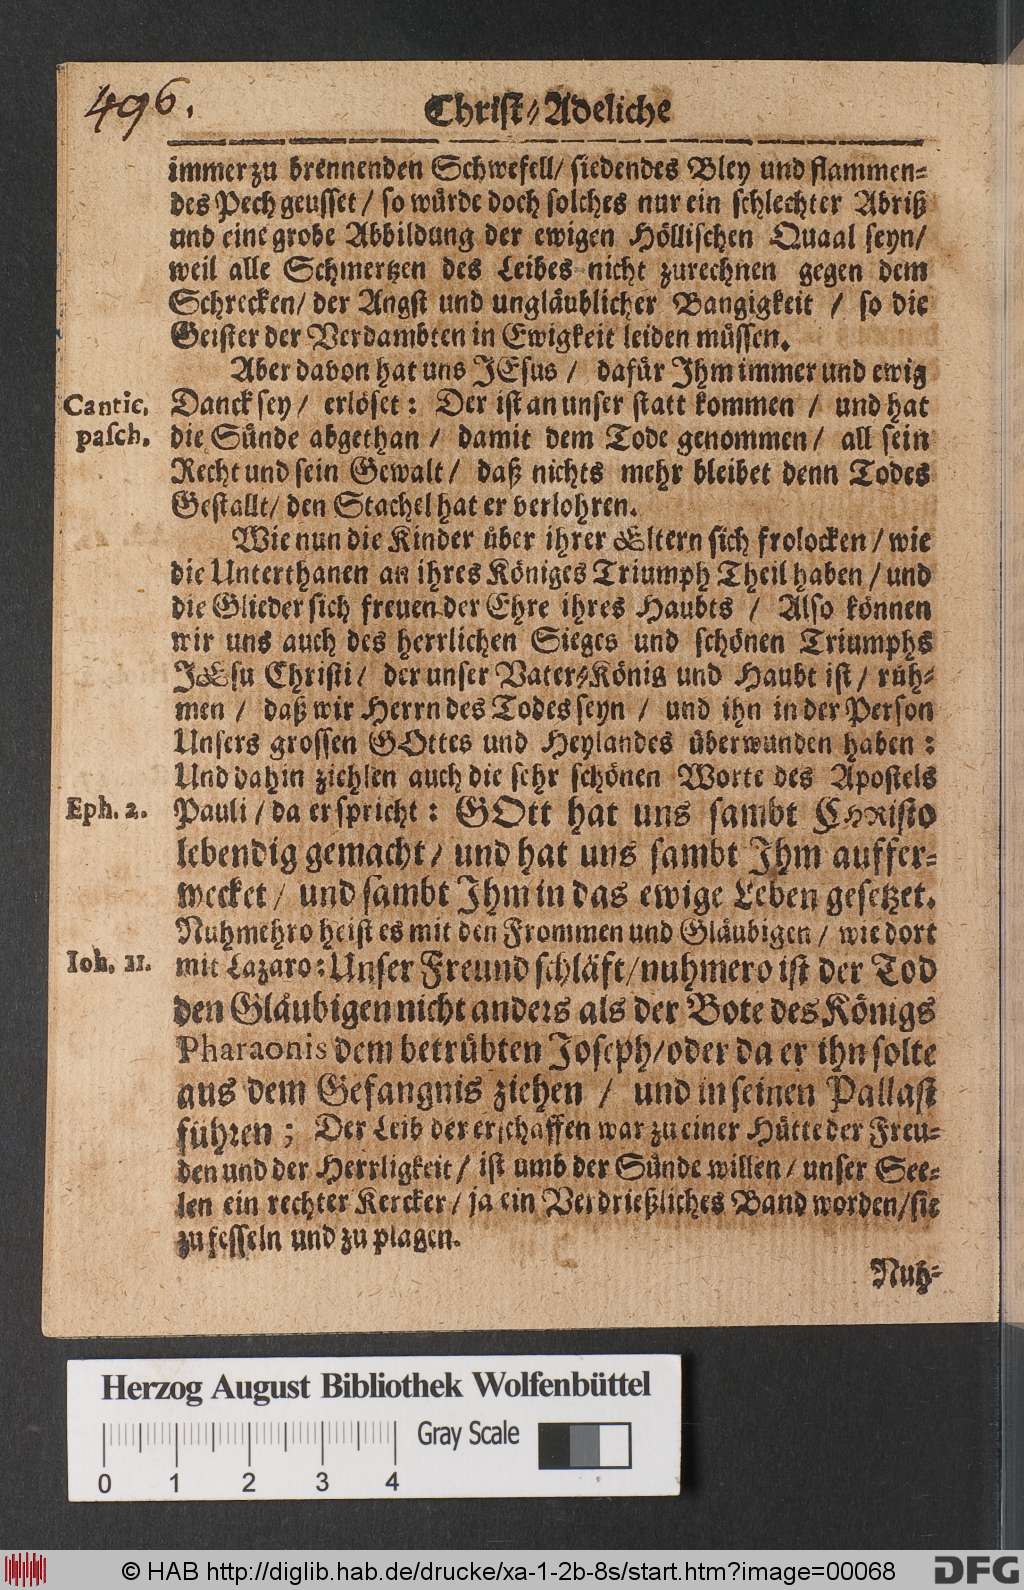 496.
Christ-Adeliche
immerzu brennenden Schwefell/ siedendes Bley und flammen-
des Pech geusset / so würde doch solches nur ein schlechter Abriß
und eine grobe Abbildung der ewigen Höllischen Quaal seyn/
weil alle Schmertzen des Leibes nicht zurechnen gegen dem
Schrecken/ der Angst und ungläublicher Bangigkeit / so die
Geister der Verdambten in Ewigkeit leiden müssen.
Aber davon hat uns JEsus / dafür Ihm immer und ewig
Cantic. Danck sey / erlöset: Der ist an unser statt kommen / und hat
pasch. die Sünde abgethan / damit dem Tode genommen / all sein
Recht und sein Gewalt / daß nichts mehr bleibet denn Todes
Gestallt/ den Stachel hat er verlohren.
Wie nun die Kinder über ihrer Eltern sich frolocken / wie
die Unterthanen an ihres Königes Triumph Theil haben / und
die Glieder sich freuen der Ehre ihres Haubts / Also können
wir uns auch des herrlichen Sieges und schönen Triumphs
JEsu Christi / der unser Vater-König und Haubt ist / rüh-
men / daß wir Herrn des Todes seyn / und ihn in der Person
Unsers grossen GOttes und Heylandes überwunden haben:
Und dahin ziehlen auch die sehr schönen Worte des Apostels
Eph. 2. Pauli / da er spricht: GOtt hat uns sambt CHRisto
lebendig gemacht / und hat uns sambt Ihm auffer-
wecket / und sambt Ihm in das ewige Leben gesetzet.
Nuhmehro heist es mit den Frommen und Gläubigen / wie dort
Ioh. 11. mit Lazaro: Unser Freund schläft / nuhmero ist der Tod
den Gläubigen nicht anders als der Bote des Königs
Pharaonis dem betrübten Joseph / oder da er ihn solte
aus dem Gefangnis ziehen / und in seinen Pallast
führen; Der Leib der erschaffen war zu einer Hütte der Freu-
den und der Herrligkeit / ist umb der Sünde willen / unser See-
len ein rechter Kercker / ja ein Verdrießliches Band worden / sie
zu fesseln und zu plagen.
Nuh-
Herzog August Bibliothek Wolfenbüttel
Gray Scale
0 1 2 3 4
© HAB http://diglib.hab.de/drucke/xa-1-2b-8s/start.htm?image=00068
DFG